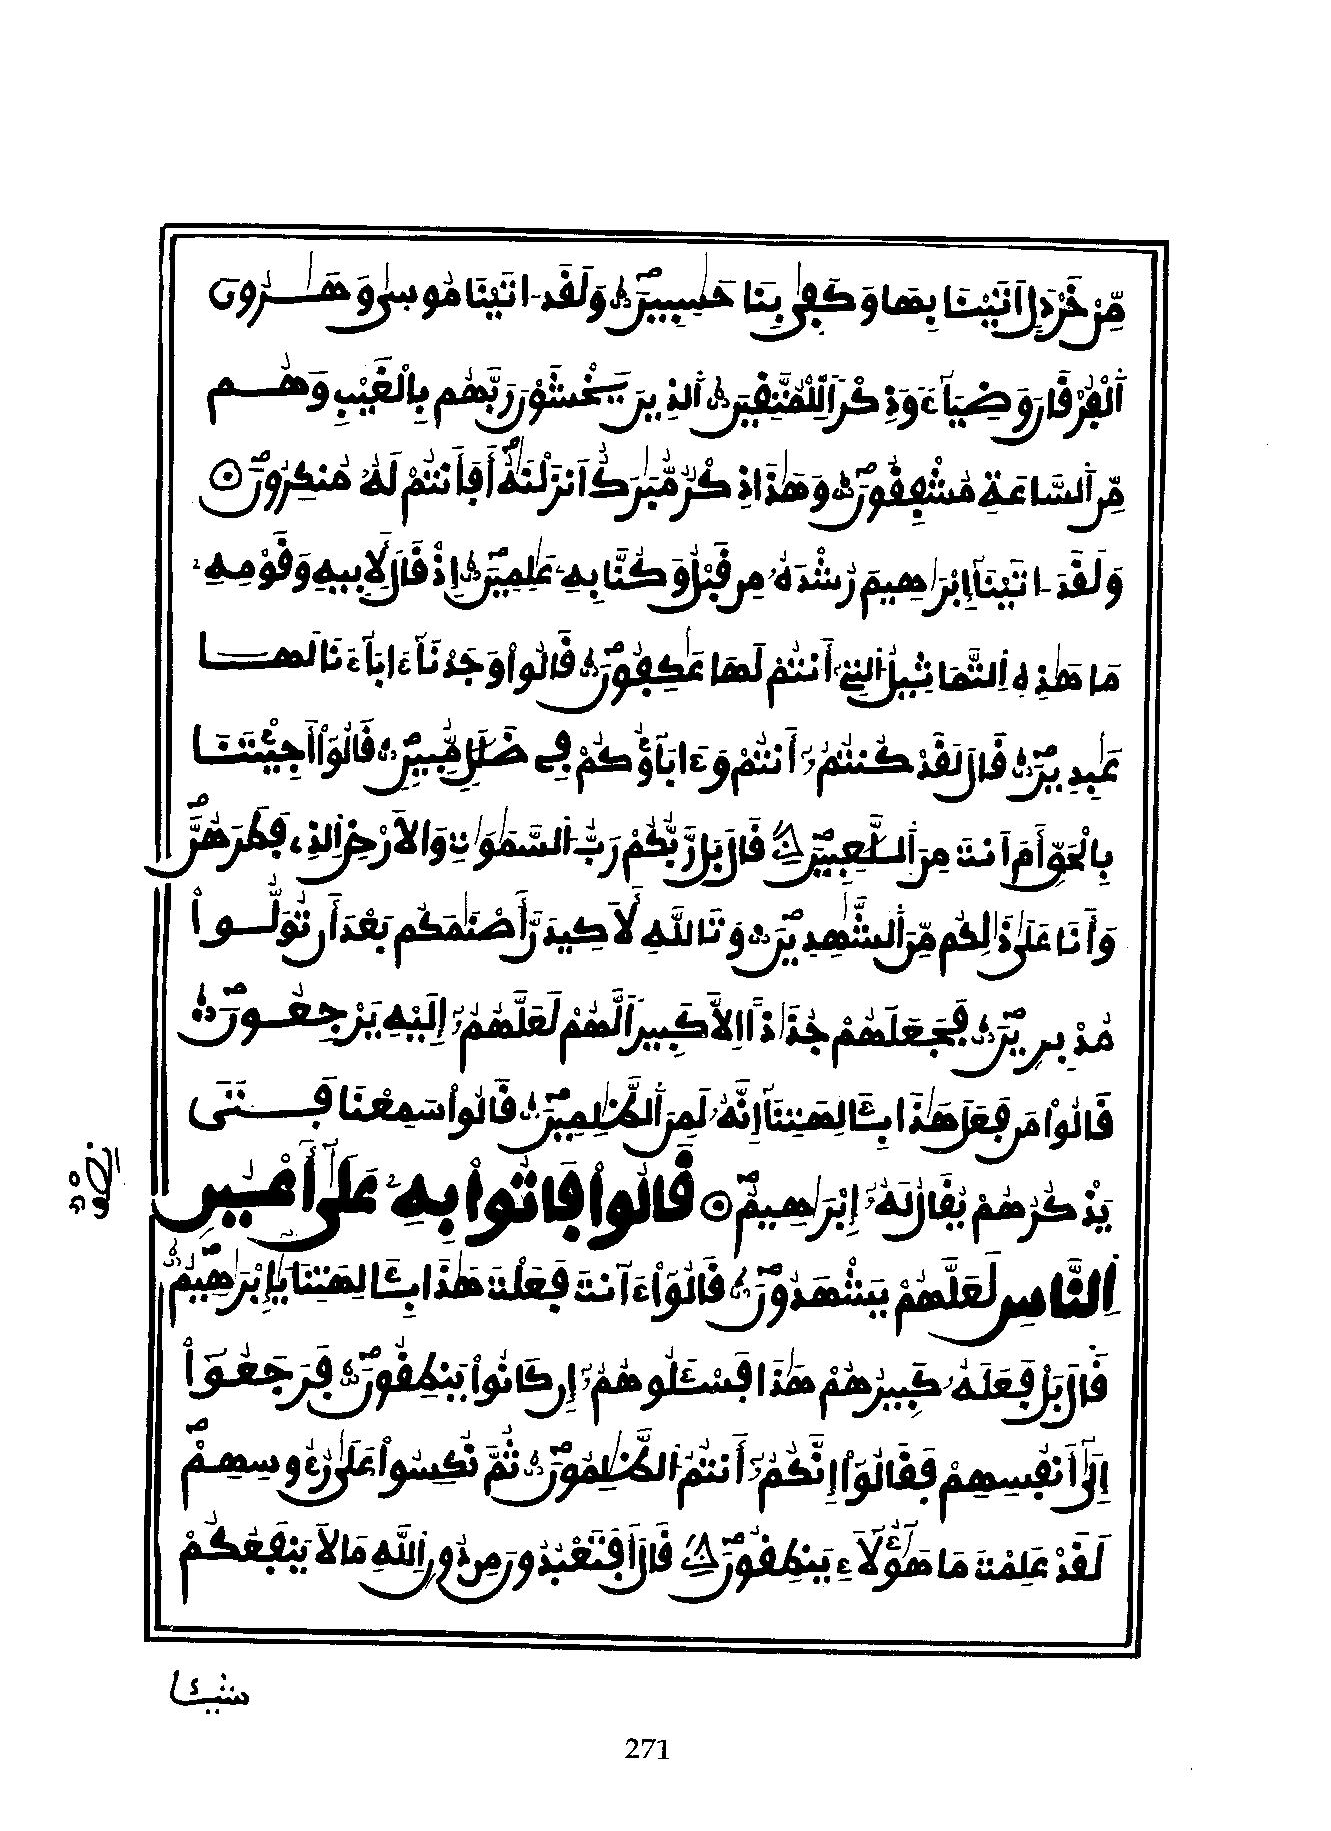 مِّنْ خَرْدَلٍ اَتَيْنَا بِهَا وَكَفٜىٰ بِنَا حَٰسِبِينَ وَلَقَدَ اتَيْنَا مُوسىٰ وَهَٰرُونَ
اَ۬لْفُرْقَانَ وَضِيَآءً وَذِكْراٗ لِّلْمُتَّقِينَ اَ۬لذِينَ يَخْشَوْنَ رَبَّهُم بِالْغَيْبِ وَهُم
مِّنَ اَ۬لسَّاعَةِ مُشْفِقُونَ وَهَٰذَا ذِكْرٌ مُّبَٰرَكٌ اَنزَلْنَٰهُ أَفَأَنتُمْ لَهُۥ مُنكِرُونَ
وَلَقَدَ اتَيْنَآ إِبْرَٰهِيمَ رُشْدَهُۥ مِن قَبْلُ وَكُنَّا بِهِۦ عَٰلِمِينَ إِذْ قَالَ لِأَبِيهِ وَقَوْمِهِۦ
مَا هَٰذِهِ اِ۬لتَّمَاثِيلُ اُ۬لتِےٓ أَنتُمْ لَهَا عَٰكِفُونَ قَالُواْ وَجَدْنَآ ءَابَآءَنَا لَهَا
عَٰبِدِينَ قَالَ لَقَدْ كُنتُمُۥٓ أَنتُمْ وَءَابَآؤُكُمْ فِے ضَلَٰلٍ مُّبِينٍ قَالُوٓاْ أَجِئْتَنَا
بِالْحَقِّ أَمَ اَنتَ مِنَ اَ۬للَّٰعِبِينَ قَالَ بَل رَّبُّكُمْ رَبُّ اُ۬لسَّمَٰوَٰتِ وَالَارْضِ اِ۬لذِے فَطَرَهُنَّ
وَأَنَا عَلَىٰ ذَٰلِكُم مِّنَ اَ۬لشَّٰهِدِينَ وَتَاللَّهِ لَأَكِيدَنَّ أَصْنَٰمَكُم بَعْدَ أَن تُوَلُّواْ
مُدْبِرِينَ فَجَعَلَهُمْ جُذَٰذاً اِلَّا كَبِيراٗ لَّهُمْ لَعَلَّهُمُۥٓ إِلَيْهِ يَرْجِعُونَ
قَالُواْ مَن فَعَلَ هَٰذَا بِـَٔالِهَتِنَآ إِنَّهُۥ لَمِنَ اَ۬لظَّٰلِمِينَ قَالُواْ سَمِعْنَا فَتىٗ
يَذْكُرُهُمْ يُقَالُ لَهُۥٓ إِبْرَٰهِيمُ قَالُواْ فَاتُواْ بِهِۦ عَلَىٰٓ أَعْيُنِ
نصف
اِ۬لنَّاسِ لَعَلَّهُمْ يَشْهَدُونَ قَالُوٓاْ ءَآنتَ فَعَلْتَ هَٰذَا بِـَٔالِهَتِنَا يَٰٓإِبْرَٰهِيمُ
قَالَ بَلْ فَعَلَهُۥ كَبِيرُهُمْ هَٰذَا فَسْـَٔلُوهُمُۥٓ إِن كَانُواْ يَنطِقُونَ فَرَجَعُوٓاْ
إِلَىٰٓ أَنفُسِهِمْ فَقَالُوٓاْ إِنَّكُمُۥٓ أَنتُمُ اُ۬لظَّٰلِمُونَ ثُمَّ نُكِسُواْ عَلَىٰ رُءُوسِهِمْ
لَقَدْ عَلِمْتَ مَا هَٰٓؤُلَآءِ يَنطِقُونَ قَالَ أَفَتَعْبُدُونَ مِن دُونِ اِ۬للَّهِ مَا لَا يَنفَعُكُمْ
شيئا
271